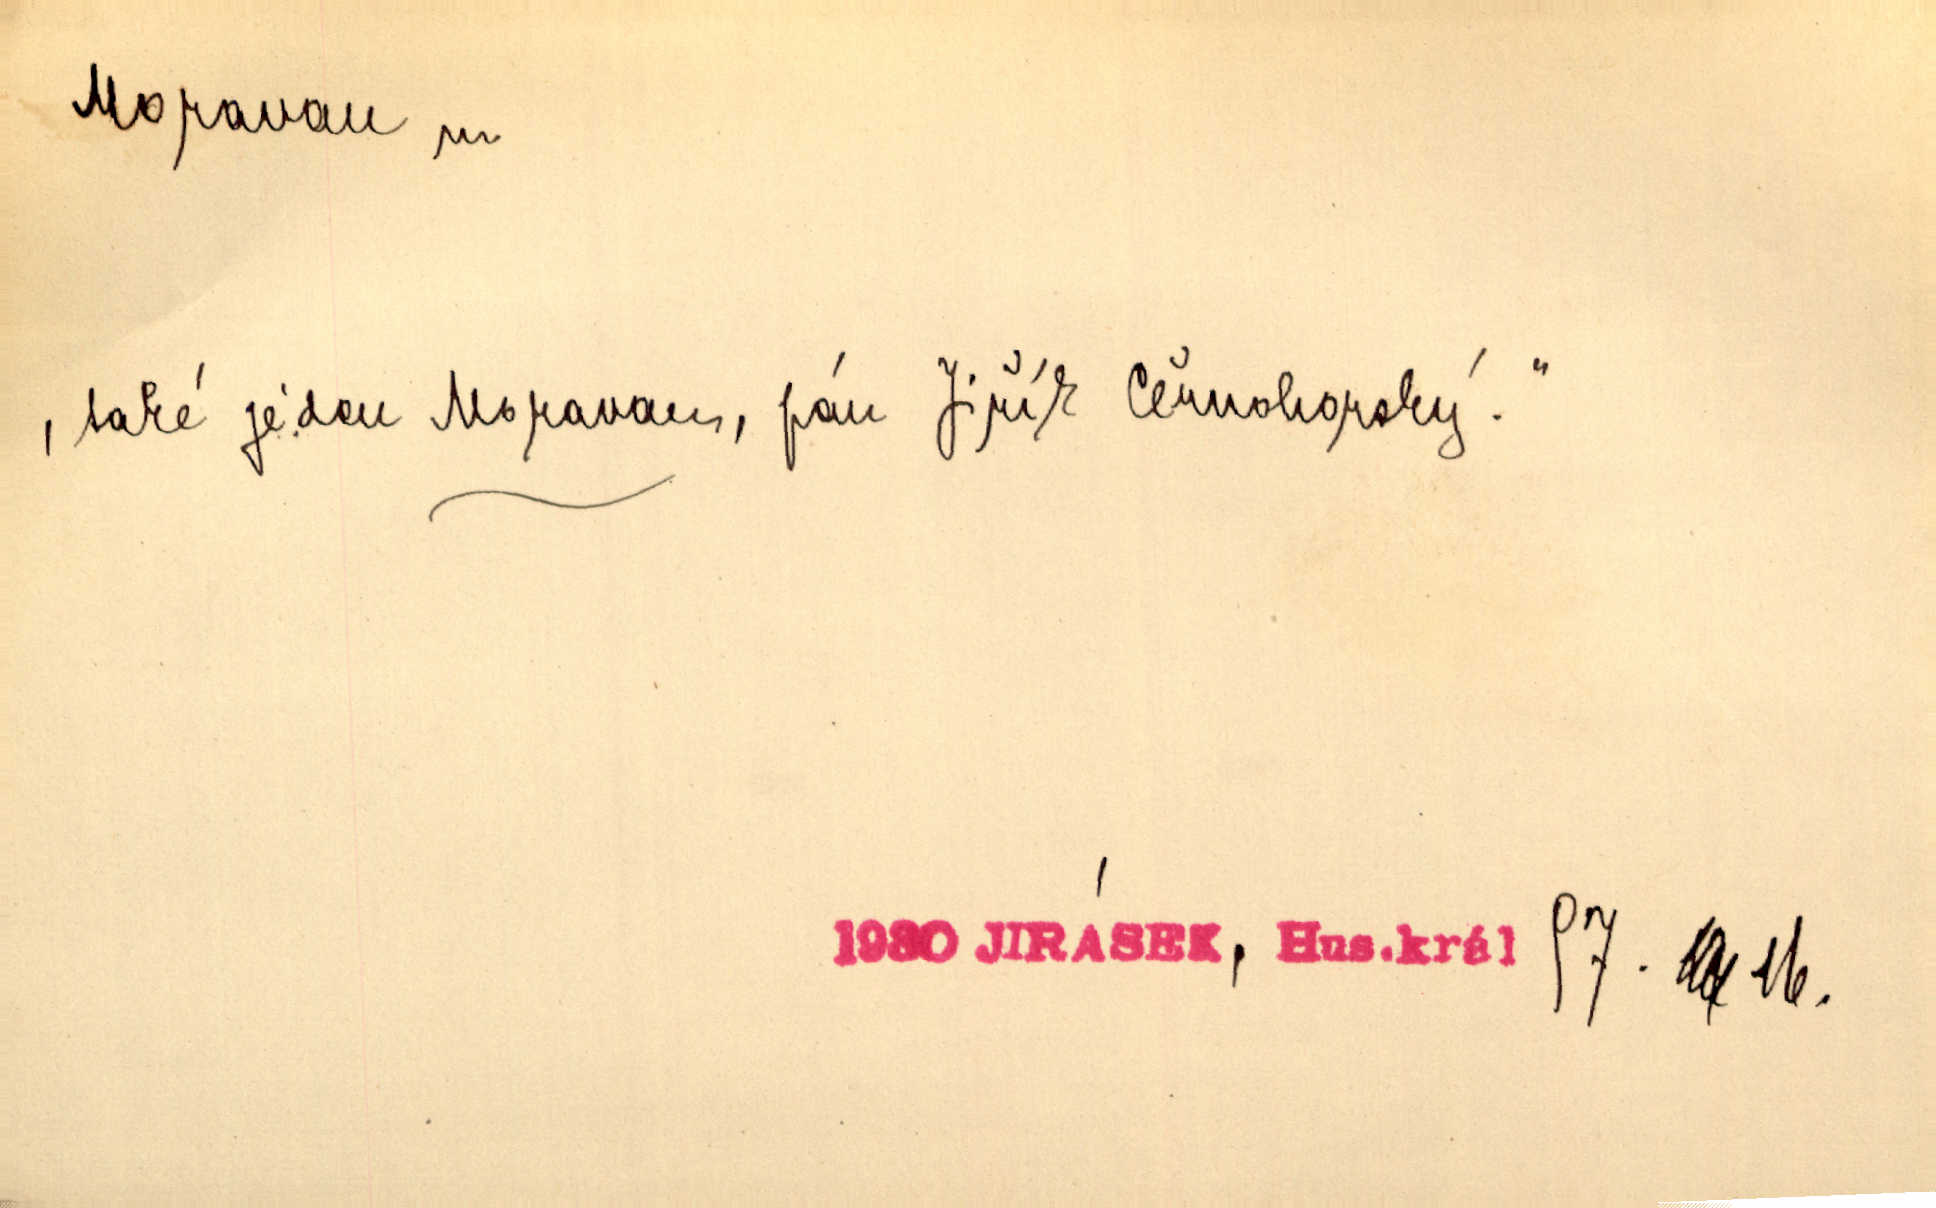 Moravan m
, také jeden Moravan, pán Jiřík Černohorský. “
1930 JIRÁSEK, Hus.král 97. 16.